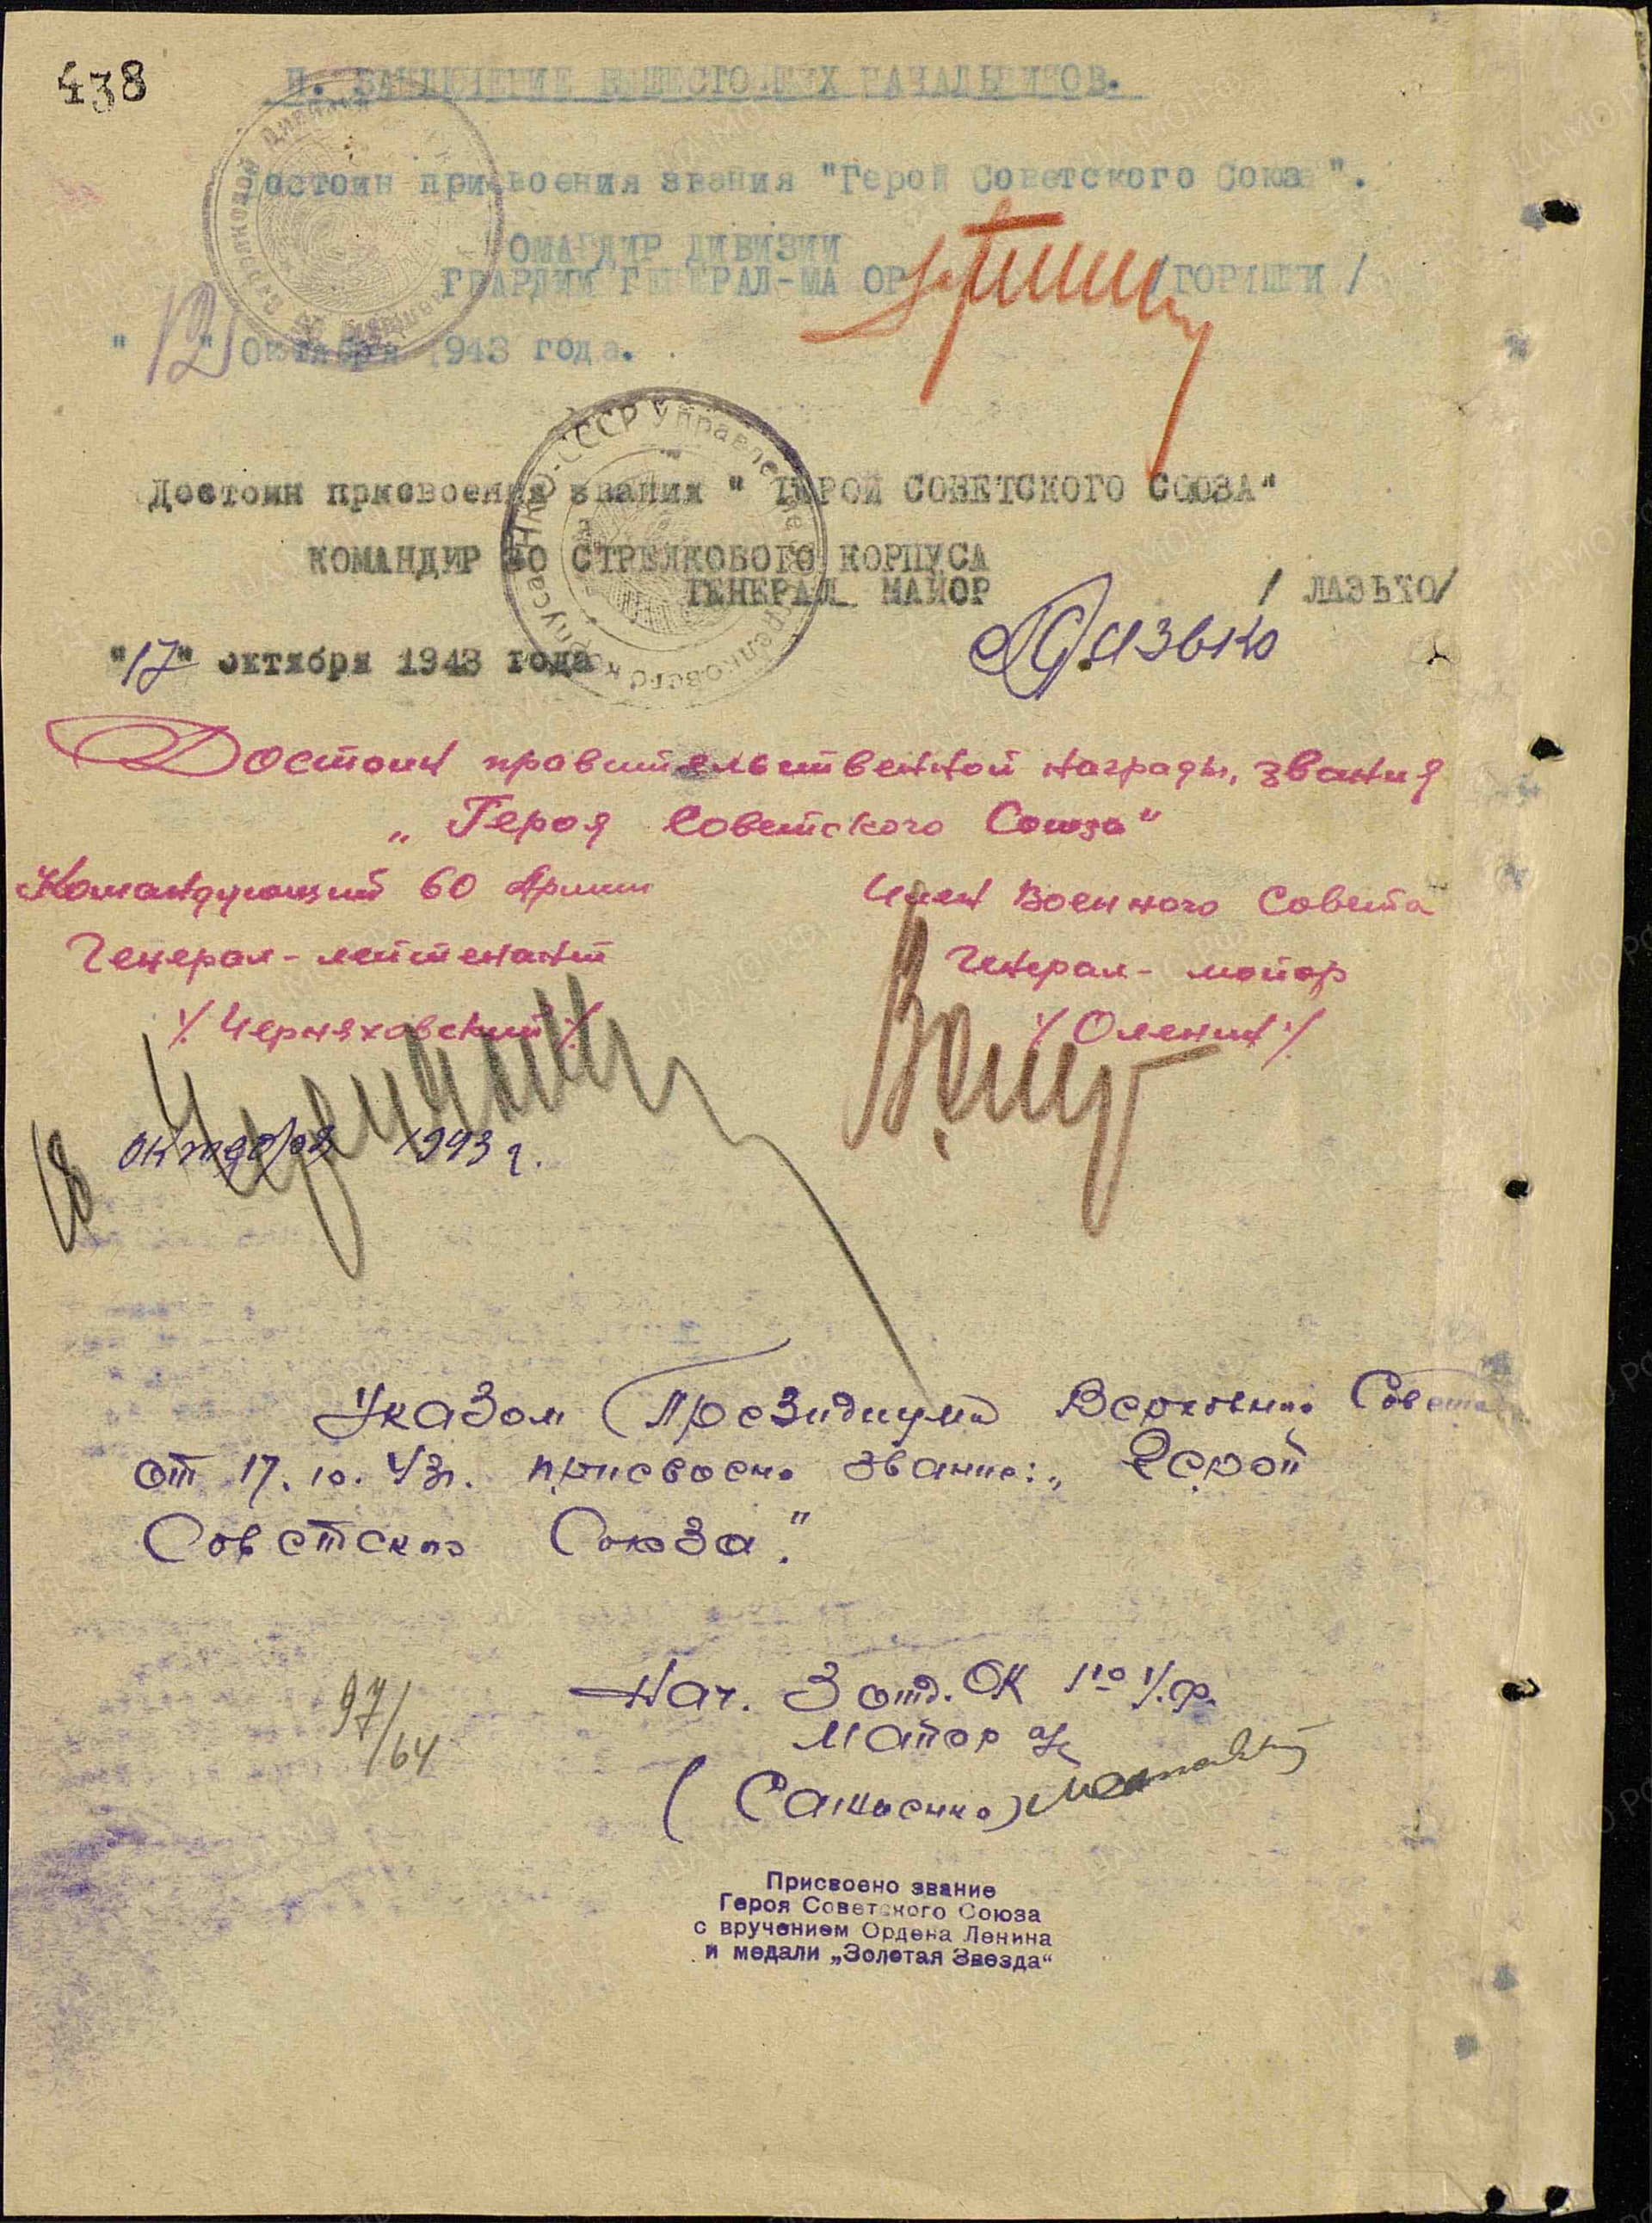 438
II. ЗАКЛЮЧЕНИЕ ВЫШЕСТОЯЩИХ НАЧАЛЬНИКОВ.
Достоин присвоения звания "Герой Советского Союза".
КОМАНДИР ДИВИЗИИ
ГВАРДИИ ГЕНЕРАЛ-МАЙОР /ГОРИШНИЙ/
"12" Октября 1943 года.
Достоин присвоения звания "ГЕРОЙ СОВЕТСКОГО СОЮЗА"
КОМАНДИР 30 СТРЕЛКОВОГО КОРПУСА
ГЕНЕРАЛ МАЙОР /ЛАЗЬКО/
Лазько
"17" октября 1943 года
Достоин правительственной награды, звания
„Героя Советского Союза"
Командующий 60 Армии Член Военного Совета
Генерал-лейтенант Генерал-майор
/Черняховский/ /Оленин/
18 октября 1943 г.
Указом Президиума Верховного Совета
от 17.10.43г. присвоено звание: „Герой
Советского Союза."
Нач. 3 отд. ОК 1го У.ф.
Майор а/с
97/64
Присвоено звание
Героя Советского Союза
с вручением Ордена Ленина
и медали „Золотая Звезда"